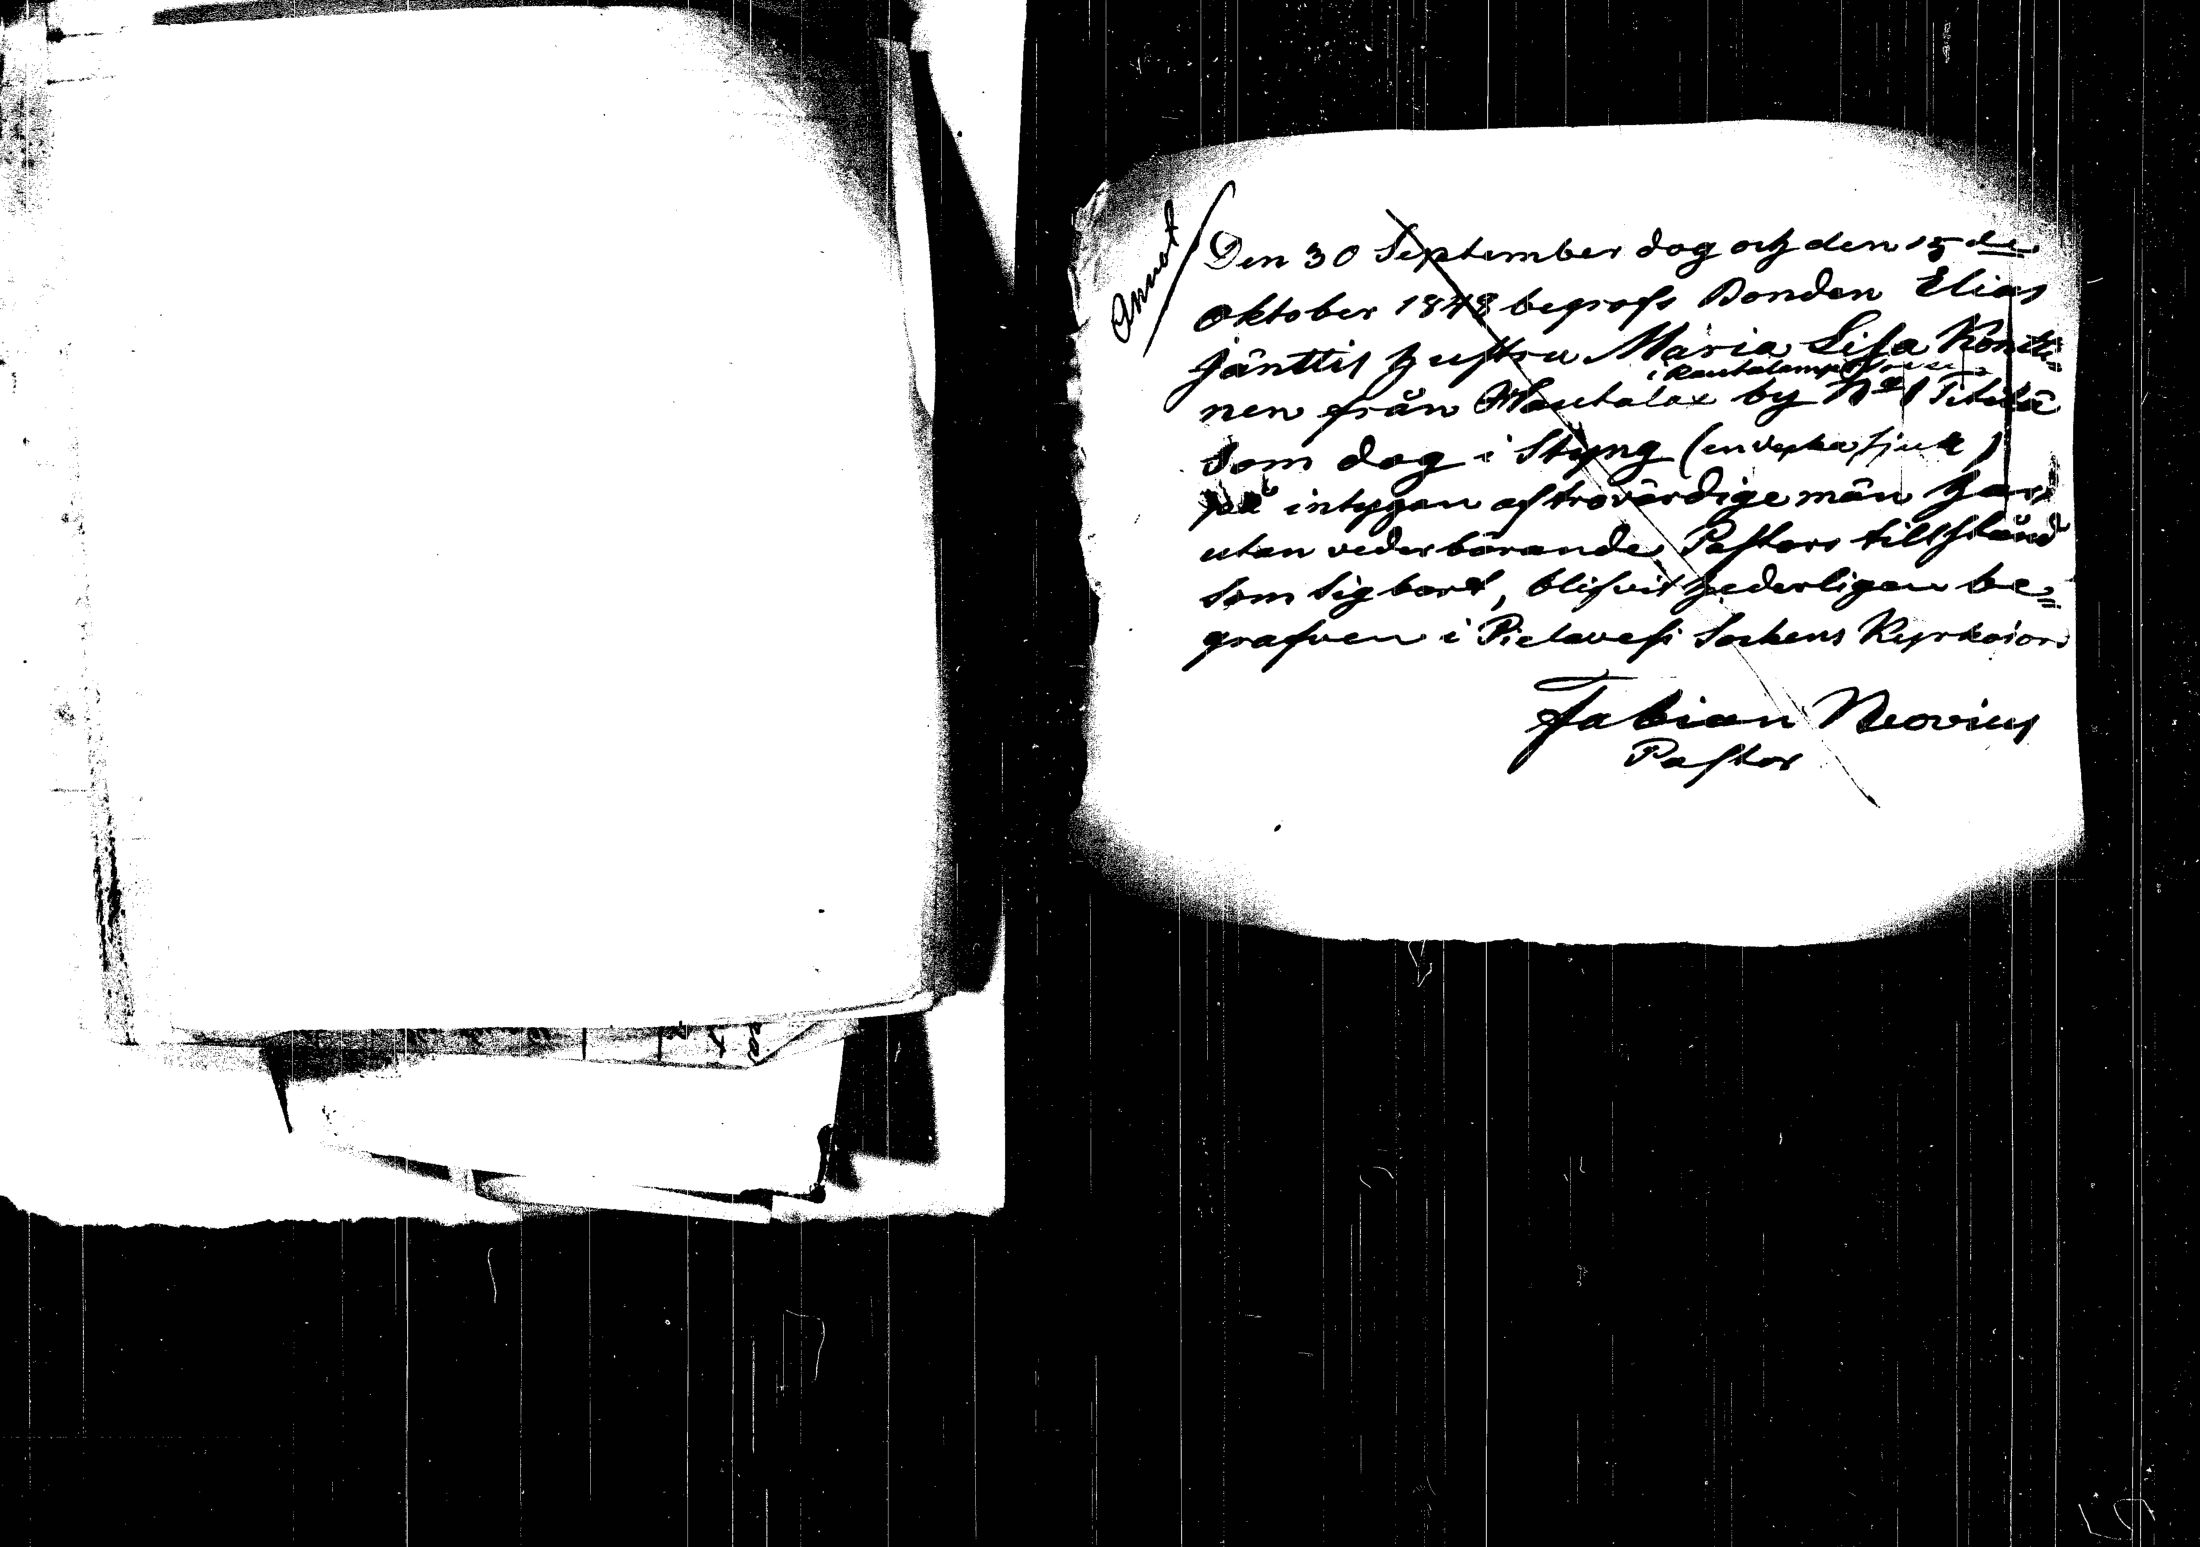 Annot
Den 30 September dog och den 15de
Oktober 1848 begrofs Bonden Elias
Jänttis hustru Maria Lisa Kontti=
i Rautalampi Socken
nen från Hautalax by No 1 Titilä
Som dog i Styng (invertes sjuk)
på intygan af trovärdige män har
utan vederbörande Pastors tillstånd
Som sig bort, blifvit hederligen be=
grafven i Pielavesi Sockens Kyrkojord
Fabian Neovius
Pastor